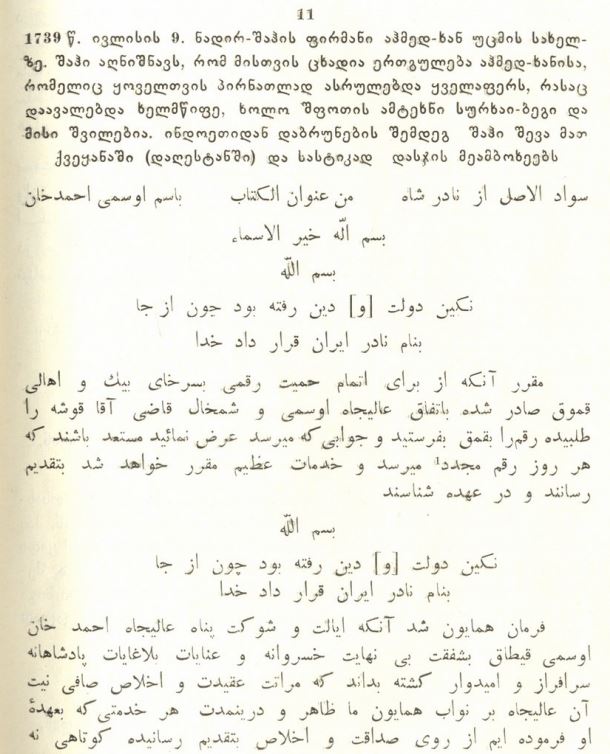 11
1739 წ. ივლისის 9. ნადირ-შაჰის ფირმანი აჰმედ-ხან უცმის სახელ-
ზე. შაჰი აღნიშნავს, რომ მისთვის ცხადია ერთგულება აჰმედ-ხანისა,
რომელიც ყოველთვის პირნათლად ასრულებდა ყველაფერს, რასაც
დაავალებდა ხელმწიფე, ხოლო შფოთის ამტეხნი სურხაი-ბეგი და
მისი შვილებია. ინდოეთიდან დაბრუნების შემდეგ შაჰი შევა მათ
ქვეყანაში (დაღესტანში) და სასტიკად დასჯის მეამბოხეებს
سواد الاصل از نادر شاه من عنوان الكتاب باسم اوسمی احمدخان
بسم الله خير الاسماء
بسم الله
نكين دولت [و] دين رفته بود جون از جا
بنام نادر ايران قرار داد خدا
مقرر آنكه از برای اتمام حميت رقمی بسرخای بيك و اهالی
قموق صادر شده باتفاق عاليجاه اوسمی و شمخال قاضی آقا قوشه را
طلبيده رقم‌را بقمق بفرستيد و جوابی‌كه ميرسد عرض نمائيد مستعد باشند كه
هر روز رقم مجدد¹ ميرسد و خدمات عظيم مقرر خواهد شد بتقديم
رسانند و در عهده شناسند
بسم الله
نكين دولت [و] دين رفته بود چون از جا
بنام نادر ايران قرار داد خدا
فرمان همايون شد آنكه ايالت و شوكت پناه عاليجاه احمد خان
اوسمی قيطاق بشفقت بی نهايت خسروانه و عنايات بلاغايات پادشاهانه
سرافراز و اميدوار كشته بداند كه مراتت عقيدت و اخلاص صافی نيت
آن عاليجاه بر نواب همايون ما ظاهر و دربنمدت هر خدمتی‌كه بعهدهٔ
او فرموده ايم از روی صداقت و اخلاص بتقديم رسانيده كوتاهی نه